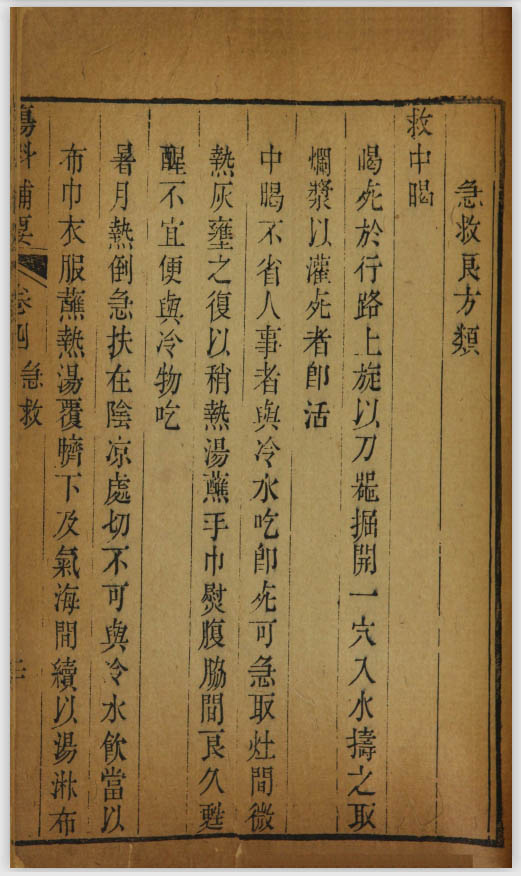 急救良方類
救中暍
暍死於行路上旋以刀器掘開一穴入水擣之取
爛漿以灌死者卽活
中暍不省人事者與冷水吃卽死可急取灶間微
熱灰壅之復以稍熱湯蘸手巾熨腹脇間良久甦
醒不宜便與冷物吃
暑月熱倒急扶在陰凉處切不可與冷水飲當以
布巾衣服蘸熱湯覆臍下及氣海間續以湯淋布
傷科補要
卷四
急救